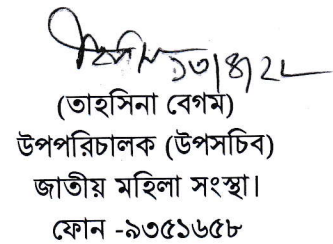 ১৩/৪/২২
(তাহসিনা বেগম)
উপপরিচালক (উপসচিব)
জাতীয় মহিলা সংস্থা।
ফোন -৯৩৫১৬৫৮